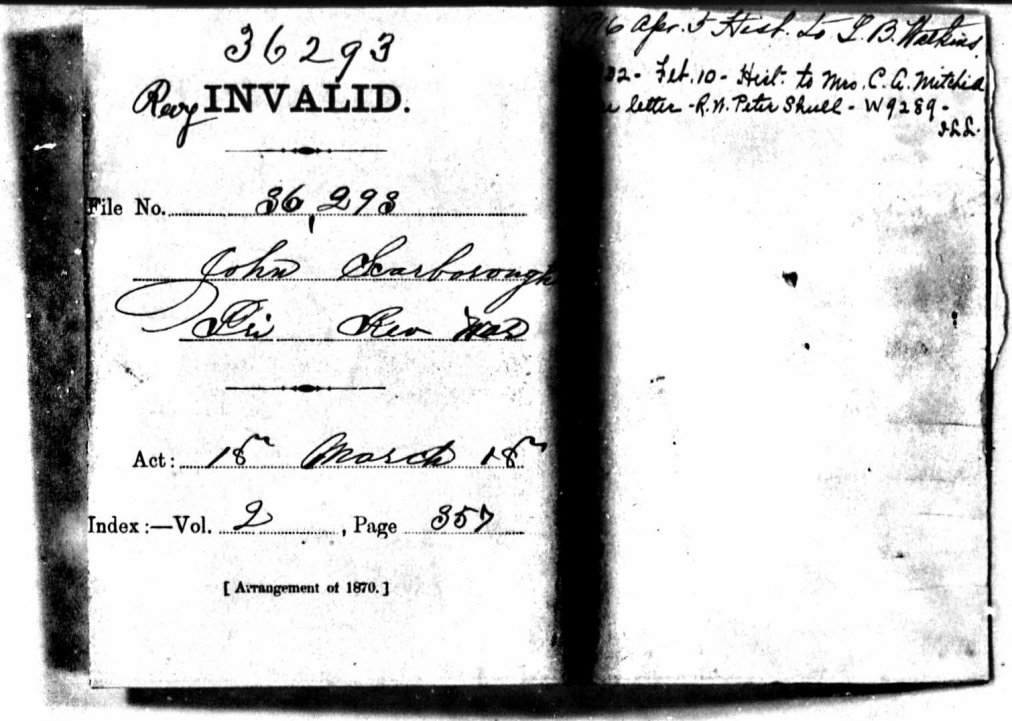 36293
Revy INVALID.
File No. 36,293
John Scarborough
Pri Rev War
Act: 18 March 18
Index:—Vol. 2, Page 357
[Arrangement of 1870.]
Apr. 5 Hist. to L. B. Watkins
32 - Feb. 10 - Hist. to Mrs. C. A.
letter - R. N. Peter Shull - W9289 -